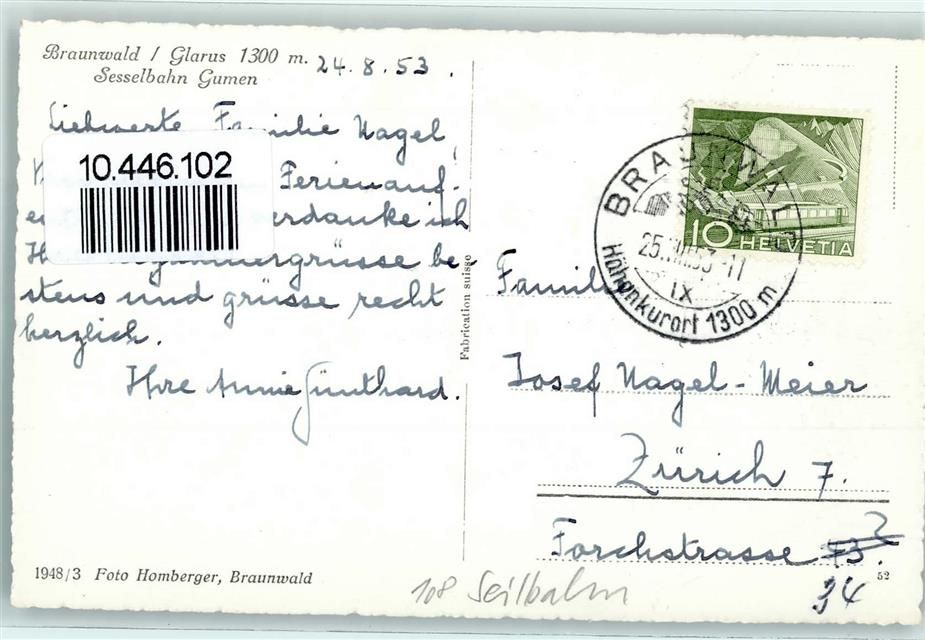 Braunwald / Glarus 1300 m.
Sesselbahn Gumen
24.8.53.
Liebwerte Familie Nagel,
10.446.102
Ferienauf-
erdanke ich
grüsse be-
stens und grüsse recht
herzlich.
Ihre Annie Günthard.
Fabrication suisse
BRAUNWALD
25.VIII.53-11
IX
Höhenkurort 1300 m
10 HELVETIA
Familie
Josef Nagel-Meier
Zürich 7.
Forchstrasse
34
1948/3 Foto Homberger, Braunwald
52
108 Seilbahn